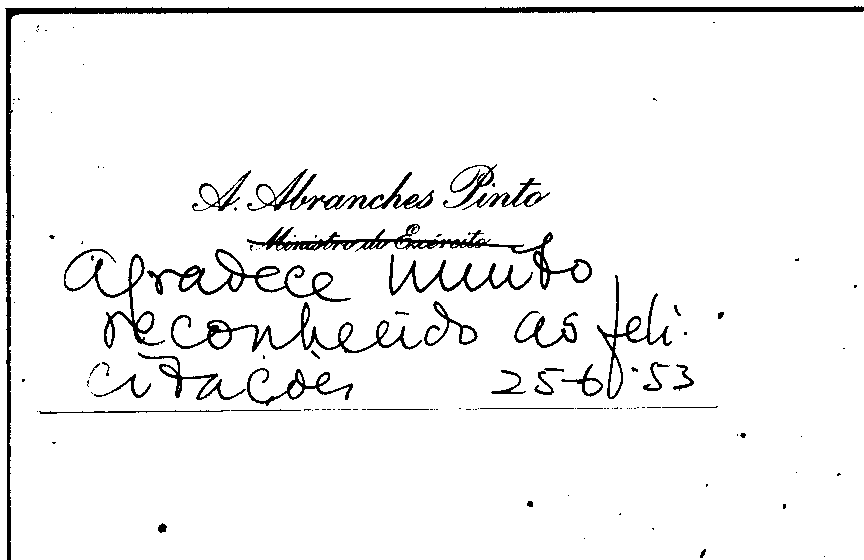 A. Abranches Pinto
Ministro do Exército
Agradece muito
reconhecido as feli-
citações 25-6-53